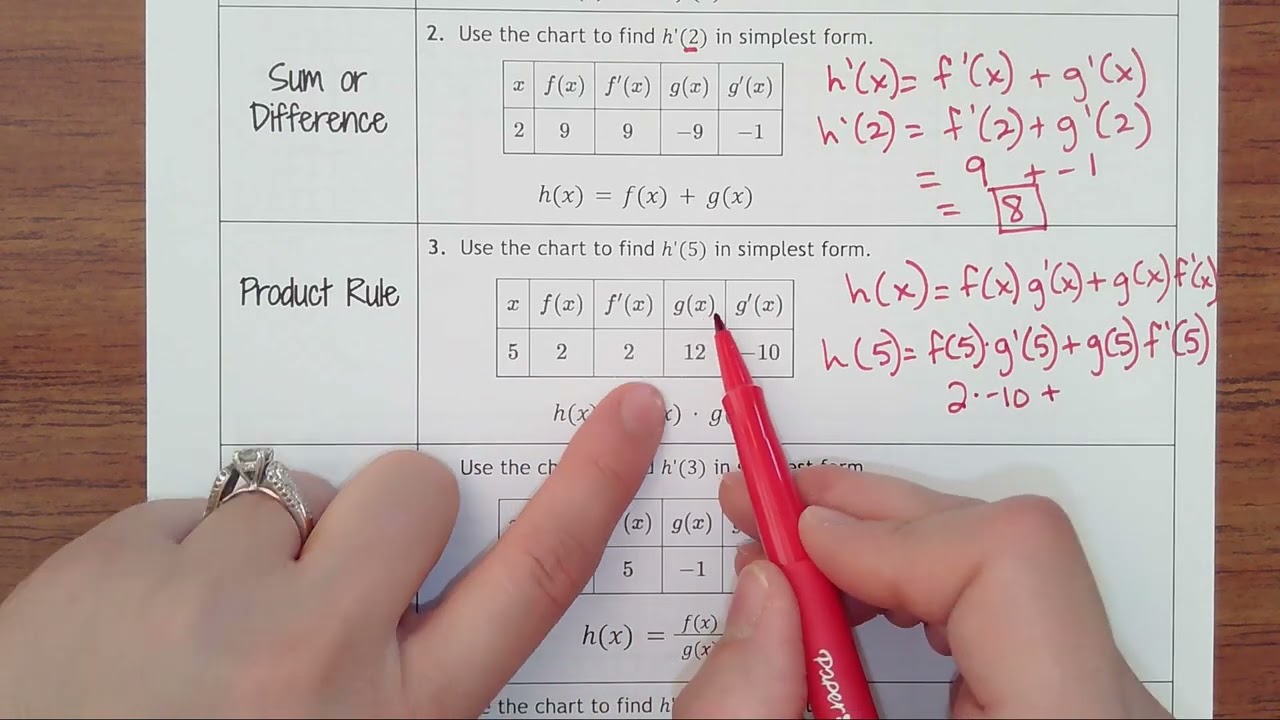 2. Use the chart to find h'(2) in simplest form.
Sum or
Difference
x f(x) f'(x) g(x) g'(x)
2 9 9 −9 −1
h(x) = f(x) + g(x)
h'(x) = f'(x) + g'(x)
h'(2) = f'(2) + g'(2)
= 9 + -1
= 8
3. Use the chart to find h'(5) in simplest form.
Product Rule
x f(x) f'(x) g(x) g'(x)
5 2 2 12 −10
h(x) · g
h(x) = f(x) g'(x) + g(x) f'(x)
h(5) = f(5) · g'(5) + g(5) f'(5)
2 · -10 +
Use the ch h'(3) in form
(x) g(x)
5 −1
h(x) = f(x)
g(x
the chart to find h'
paper